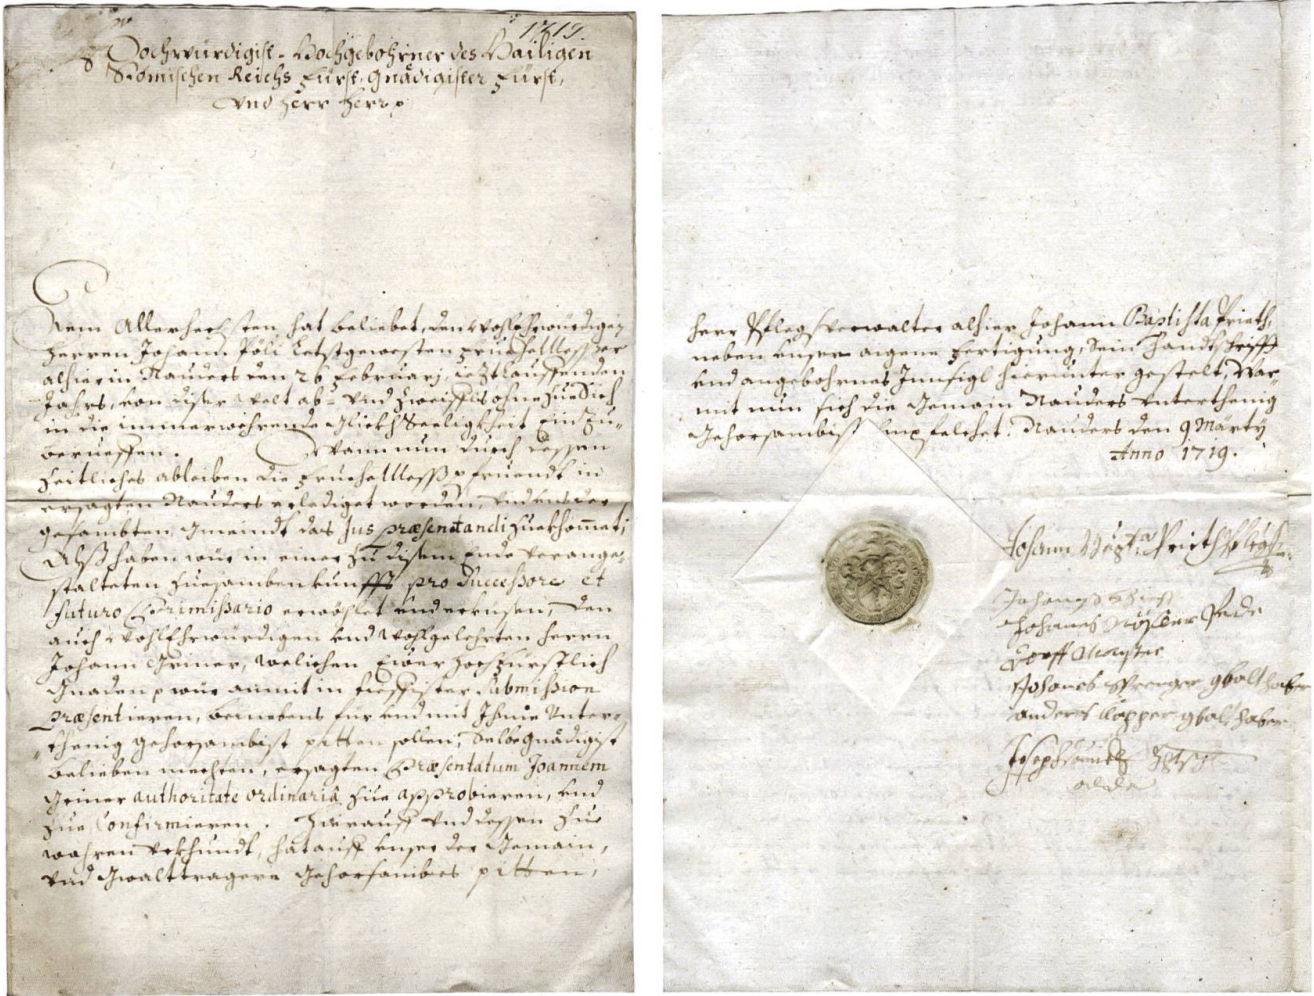 1719.
Hochwürdigist- Hochgebohrner des Hailigen
Römischen Reichs Fürst, Gnädigister Fürst,
Und Herr Herr p
Deme Allerhechsten hat beliebet, den Wohlehrwürdigen
Herren Johann Pöli Letstgewesten Fruehemesser
alhier in Nauders den 26 Februarj, ietztlauffenden
Jahrs, von diser Welt ab- und zweiffls ohne zue Sich
in die immerwehrende Seeligkheit einzu-
berueffen. Wann nun durch dessen
Zeitliches ableiben die Fruehemess pfruendt in
ersagten Nauders erlediget worden, und unser
gesambten Gmeindt das Jus præsentandi zuekhommet;
Alss haben wür in einer zu disem Ende verange-
stalteten zuesambenkunfft pro Successore et
futuro Primissario erwöhlet und erkhisen, den
auch Wohlehrwürdigen und Wohlgelehrten Herrn
Johann Greiner, welichen Eüwer Hochfürstlich
Gnaden p wür anmit in tieffister Submission
præsentieren, bernebens für und mit Ihme Unter-
thenig gehorsambist pitten sollen, Selbe gnädigist
belieben mechten, ersagten Præsentatum Joannem
Greiner authoritate ordinaria zue approbieren, und
zue Confirmieren. Hierauff und dessen zue
wahren Uhrkhundt, hat auff unser der Gemain,
und Gwalttragern gehorsambes pitten,
Herr Pflegsverwalter alhier Johann Baptista Prieth,
neben unser aigene Fertigung, Sein Handtschrifft
und angebohrnes Innsigl hierunter gestelt, Wor-
mit nun sich die Gemain Nauders unterthenig
Gehorsambist empfelchet. Nauders den 9. Märty
Anno 1719.
Johann Bapta Prieth
Johanes
Dorff Maister
Johanes Sprenger gwalthaber
anderes Clapper gwalthaber